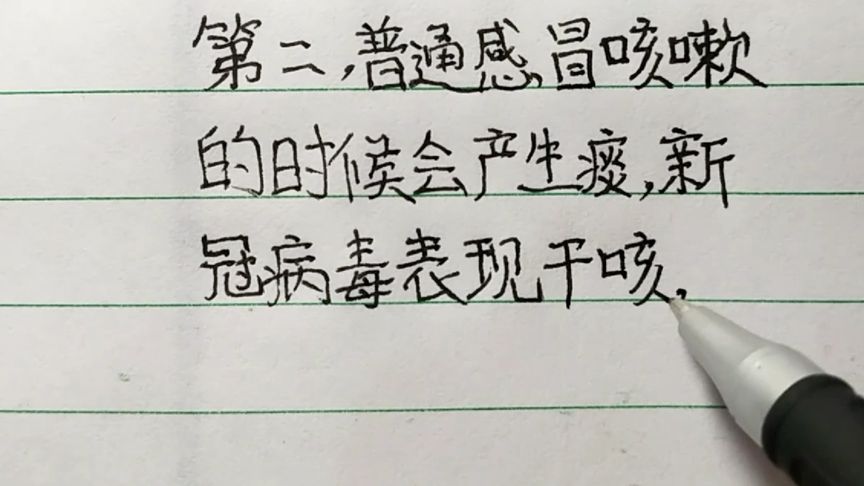 第二,普通感冒咳嗽
的时候会产生痰,新
冠病毒表现干咳,